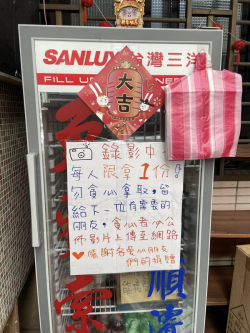 SANLUX台灣三洋
FILL U
NE
大吉
錄影中
每人限拿1份
勿貪心拿取,留
給下一位有需要的
朋友,貪心者必公
佈影片上傳至網路
♥感謝各愛心朋友
們的捐贈
順